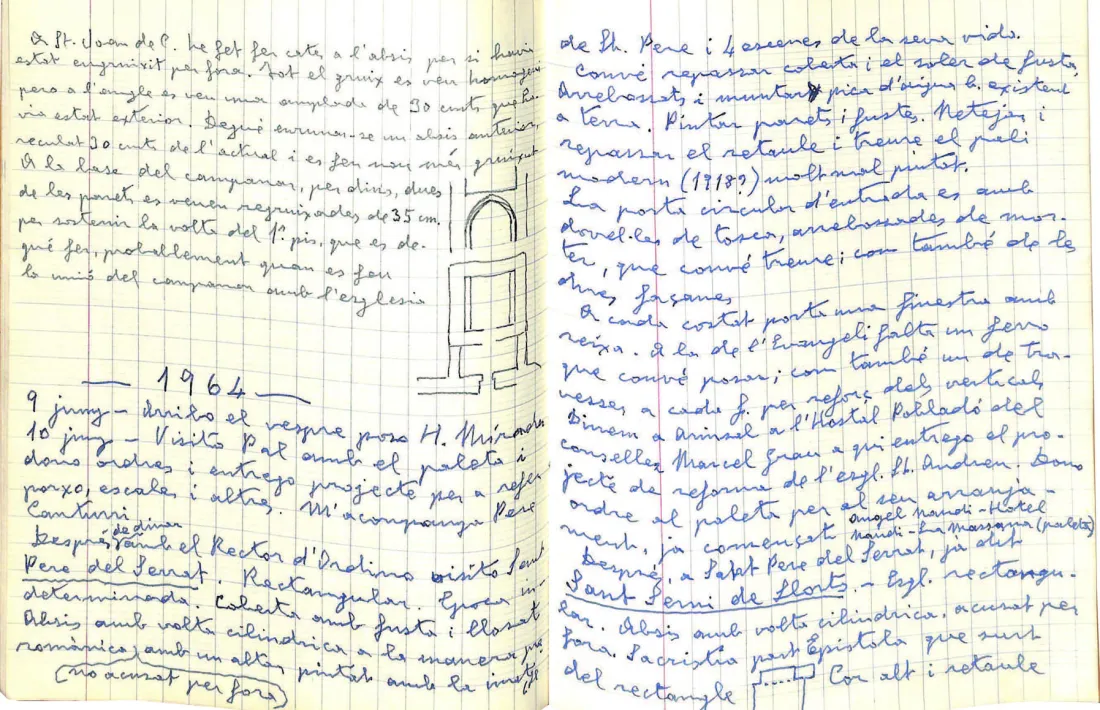 A St. Joan de C. he fet fer cates a l'absis per si havia
estat engruixit per fora. Tot el gruix es veu homogeni
pero a l'angle es veu una amplada de 30 cmts que ha-
via estat exterior. Degué enrunar-se un absis anterior,
reculat 30 cmts de l'actual i es feu nou més gruixut
A la base del campanar, per dins, dues
de les parets es veuen regruixades de 35 cm.
per sostenir la volta del 1r pis, que es de-
gué fer, probablement quan es feu
la unió del campanar amb l'església
— 1964 —
9 juny – Arribo el vespre poso H. Mirador
10 juny – Visito Pal amb el paleta i
dono ordres i entrego projecte per a refer
porxo, escales i altres. M'acompanya Pere
Canturri
Després de dinar amb el Rector d'Ordino visito Sant
Pere del Serrat. Rectangular. Epoca in-
determinada. Coberta amb fusta i llosat
Absis amb volta cilindrica a la manera pre
romànica, amb un altar pintat amb la imatge
(no acusat per fora)
de St. Pere i 4 escenes de la seva vida.
Convé repassar coberta i el soler de fusta,
Arrebossats i muntar pica d'aigua b. existent
a terra. Pintar parets i fustes. Netejar i
repassar el retaule i treure el pali
modern (1918?) molt mal pintat.
La porta circular d'entrada es amb
dovel·les de tosca, arrebossades de mor-
ter, que convé treure; com també de les
altres façanes
A cada costat porta una finestra amb
reixa. A la de l'Evangeli falta un ferro
que convé posar; com també un de tra-
vesser a cada f. per reforç dels verticals
Dinem a Arinsal a l'Hostal Poblado del
conseller Marcel Grau a qui entrego el pro-
jecte de reforma de l'esgl. St. Andreu. Dono
ordre al paleta per al seu arranja-
ment, ja començat Angel Nandi-Hotel
Nandi - La Massana (paleta)
Després, a Sant Pere del Serrat, ja dit
Sant Serni de Llorts. – Esgl. rectangu-
lar. Absis amb volta cilindrica, acusat per
fora. Sacristia part Epistola que surt
del rectangle Cor alt i retaule